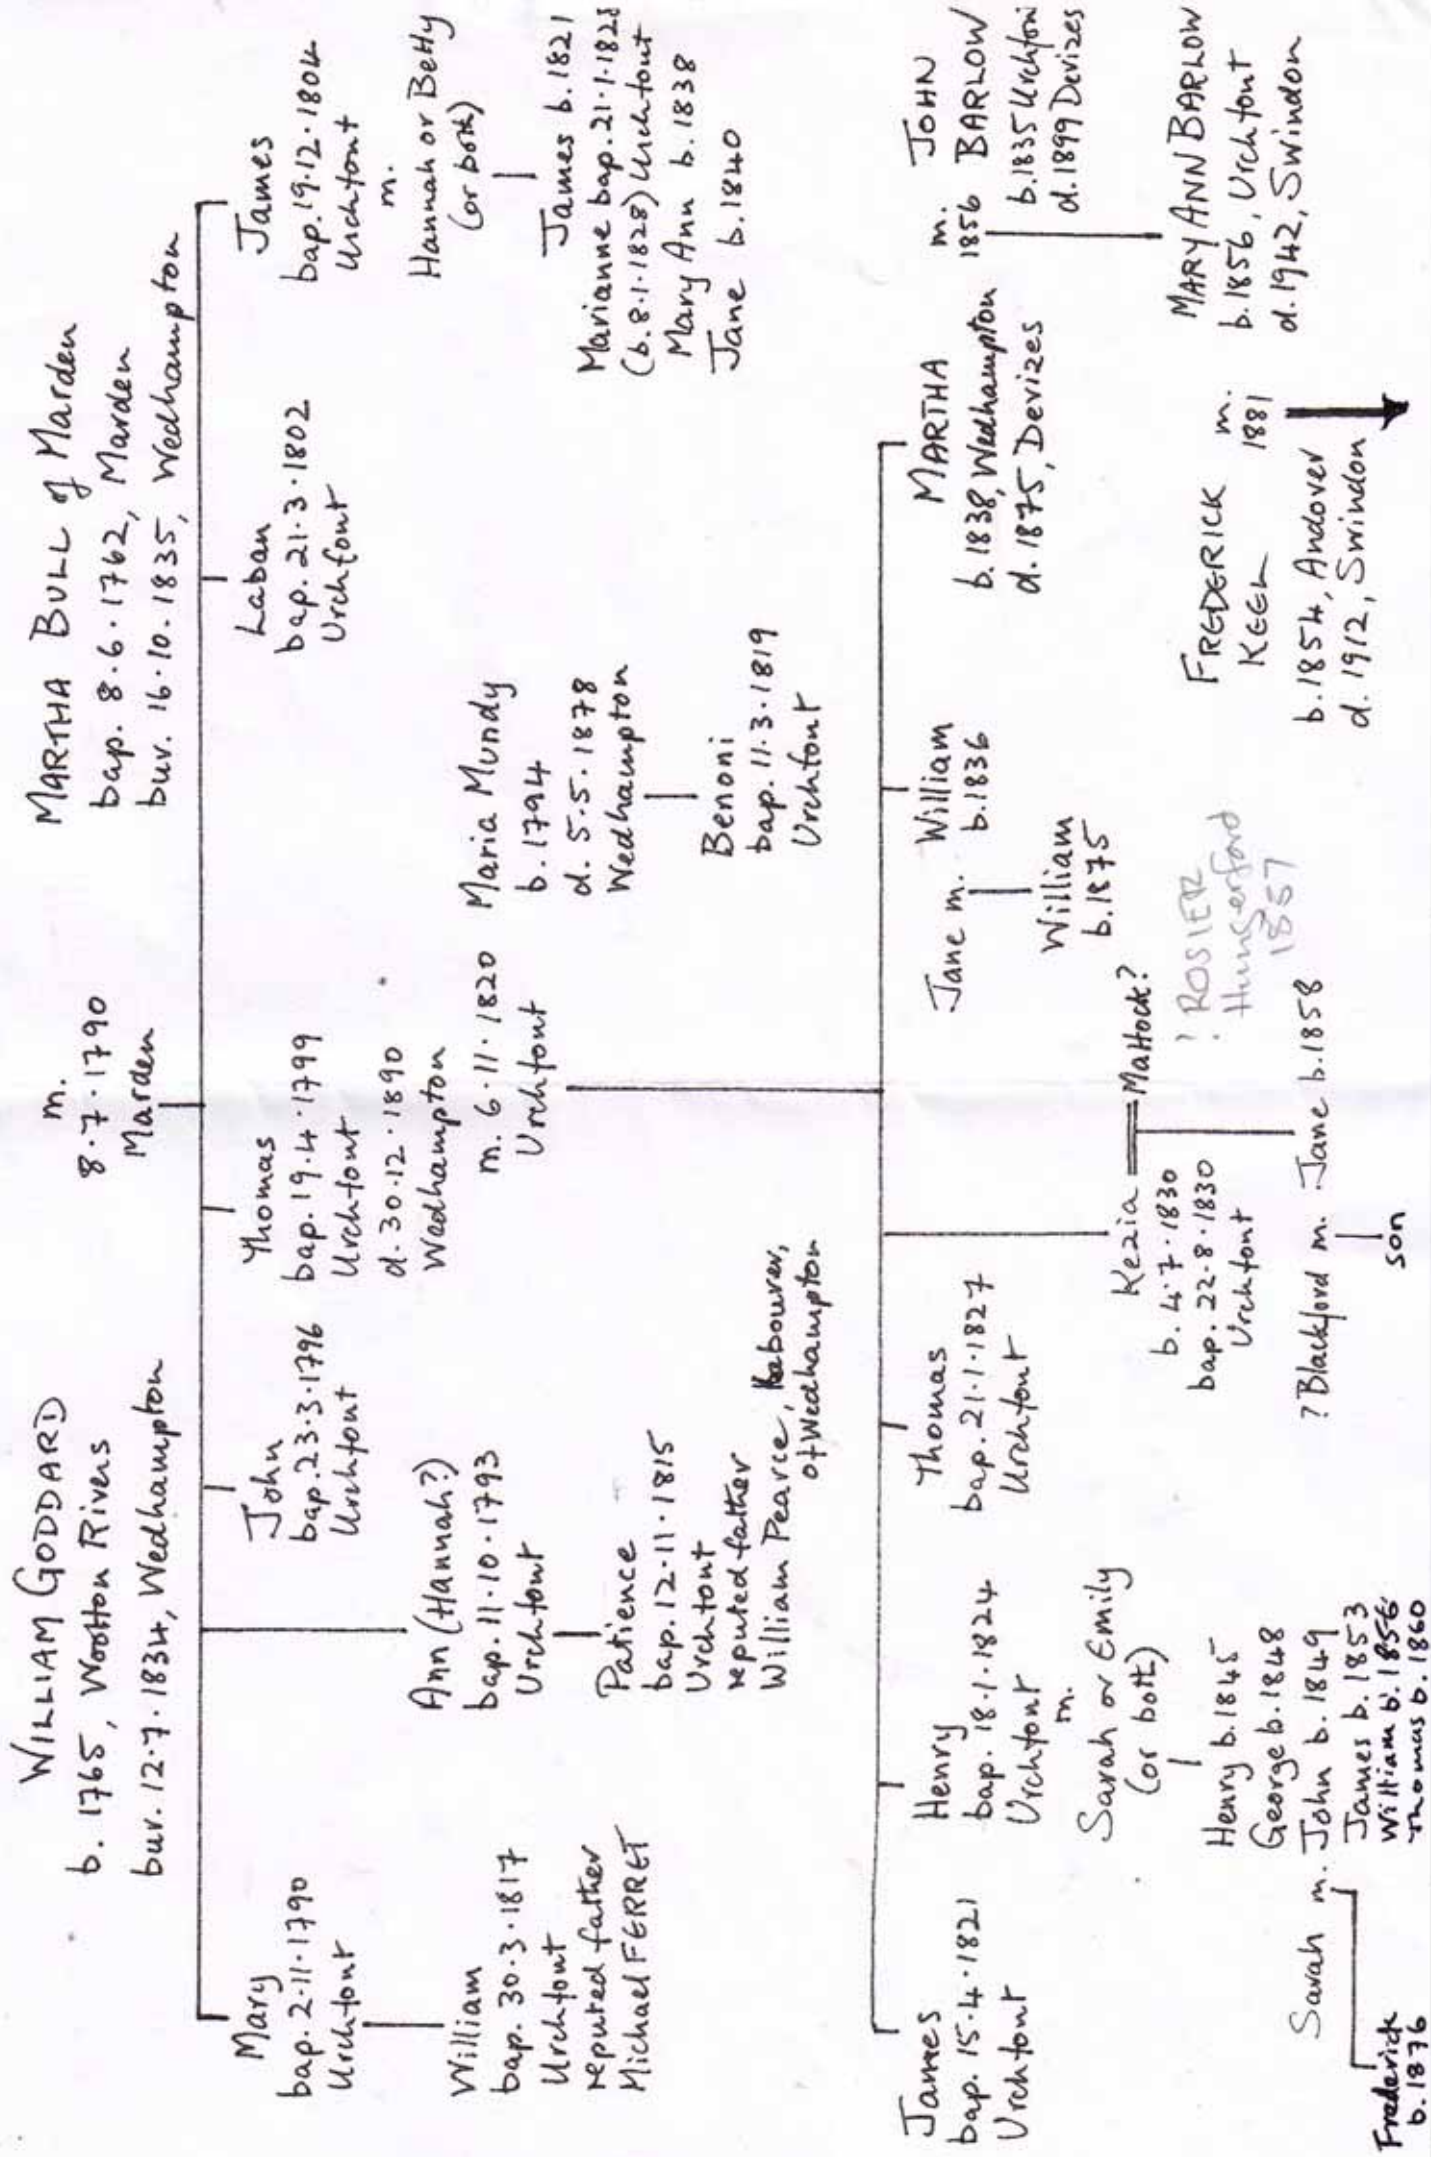 WILLIAM GODDARD
b. 1765, Wootton Rivers
bur. 12.7.1834, Wedhampton
m.
8.7.1790
Marden
MARTHA BULL of Marden
bap. 8.6.1762, Marden
bur. 16.10.1835, Wedhampton
Mary
bap. 2.11.1790
Urchfont
William
bap. 30.3.1817
Urchfont
reputed father
Michael FERRET
Ann (Hannah?)
bap. 11.10.1793
Urchfont
Patience
bap. 12.11.1815
Urchfont
reputed father
William Pearce, labourer,
of Wedhampton
John
bap. 23.3.1796
Urchfont
Thomas
bap. 19.4.1799
Urchfont
d. 30.12.1890
Wedhampton
m. 6.11.1820
Urchfont
Maria Mundy
b. 1794
d. 5.5.1878
Wedhampton
Benoni
bap. 11.3.1819
Urchfont
Laban
bap. 21.3.1802
Urchfont
James
bap. 19.12.1804
Urchfont
m.
Hannah or Betty
(or both)
James b. 1821
Marianne bap. 21.1.1828
(b. 8.1.1828) Urchfont
Mary Ann b. 1838
Jane b. 1840
James
bap. 15.4.1821
Urchfont
Henry
bap. 18.1.1824
Urchfont
m.
Sarah or Emily
(or both)
Henry b. 1845
George b. 1848
Sarah m. John b. 1849
James b. 1853
William b. 1856
Thomas b. 1860
Frederick
b. 1876
Thomas
bap. 21.1.1827
Urchfont
Kezia = Mattock?
b. 4.7.1830
bap. 22.8.1830
Urchfont
! ROSIER
Hungerford
1857
? Blackford m. Jane b. 1858
son
Jane m. William
b. 1836
William
b. 1875
MARTHA
b. 1838, Wedhampton
d. 1875, Devizes
m.
1856
JOHN
BARLOW
b. 1835 Urchfont
d. 1899 Devizes
FREDERICK
KEEL
b. 1854, Andover
d. 1912, Swindon
m.
1881
MARY ANN BARLOW
b. 1856, Urchfont
d. 1942, Swindon